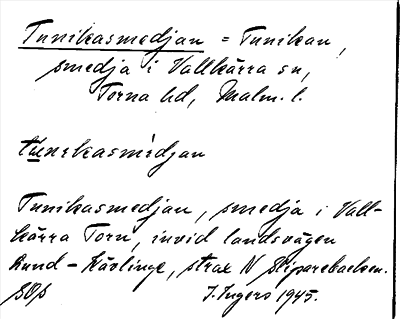 Tunikasmedjan = Tunikan,
smedja i Vallkärra sn,
Torna hd, Malm. l.
tunekasmedjan
Tunikasmedjan, smedja i Vall-
kärra Torn, invid landsvägen
Lund - Kävlinge, strax N Sliparebacken.
SOS J. Ingers 1945.